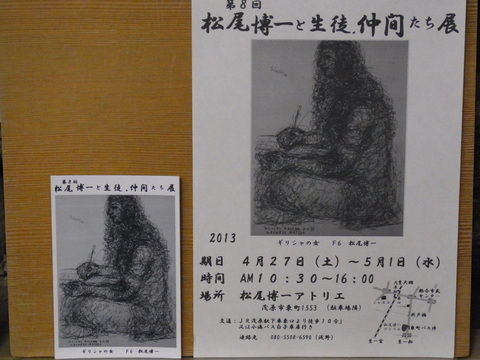 第8回
松尾博一と生徒.仲間たち展
2013
ギリシャの女 F6 松尾博一
期日 4月27日(土)~5月1日(水)
時間 AM10:30~16:00
場所 松尾博一アトリエ
茂原市東町1553 (駐車場隣)
交通:JR茂原駅下車東口より徒歩10分
又は小湊バス白子車庫行き
連絡先
第8回
松尾博一と生徒.仲間たち展
ギリシャの女 F6 松尾博一